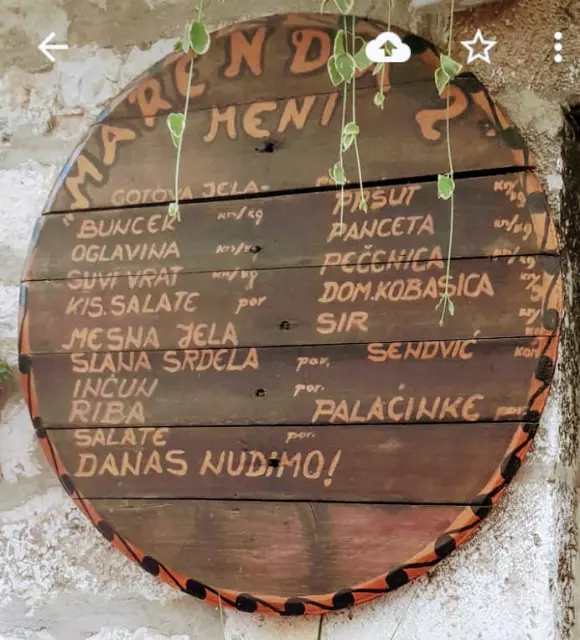 "MARENDA 2"
MENI
GOTOVA JELA-
BUNCEK kn/kg
OGLAVINA kn/kg
SUVI VRAT kn/kg
KIS. SALATE por
MESNA JELA
SLANA SRDELA por.
INĆUN por.
RIBA
SALATE por.
DANAS NUDIMO!
PRŠUT kn/kg
PANCETA kn/kg
PEČENICA kn/kg
DOM. KOBASICA kn/kg
SIR
SENDVIĆ kom
PALAĆINKE por.